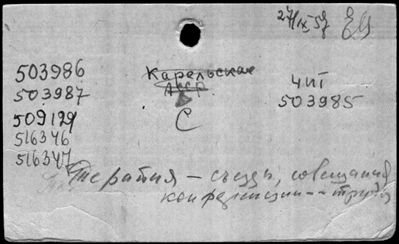 27/IX 57 ЕЦ
503986
503987
509129
516346
516347
Карельская
АССР
С
ЧИТ
503985
Терапия - съезды, совещания
конференции -- труды